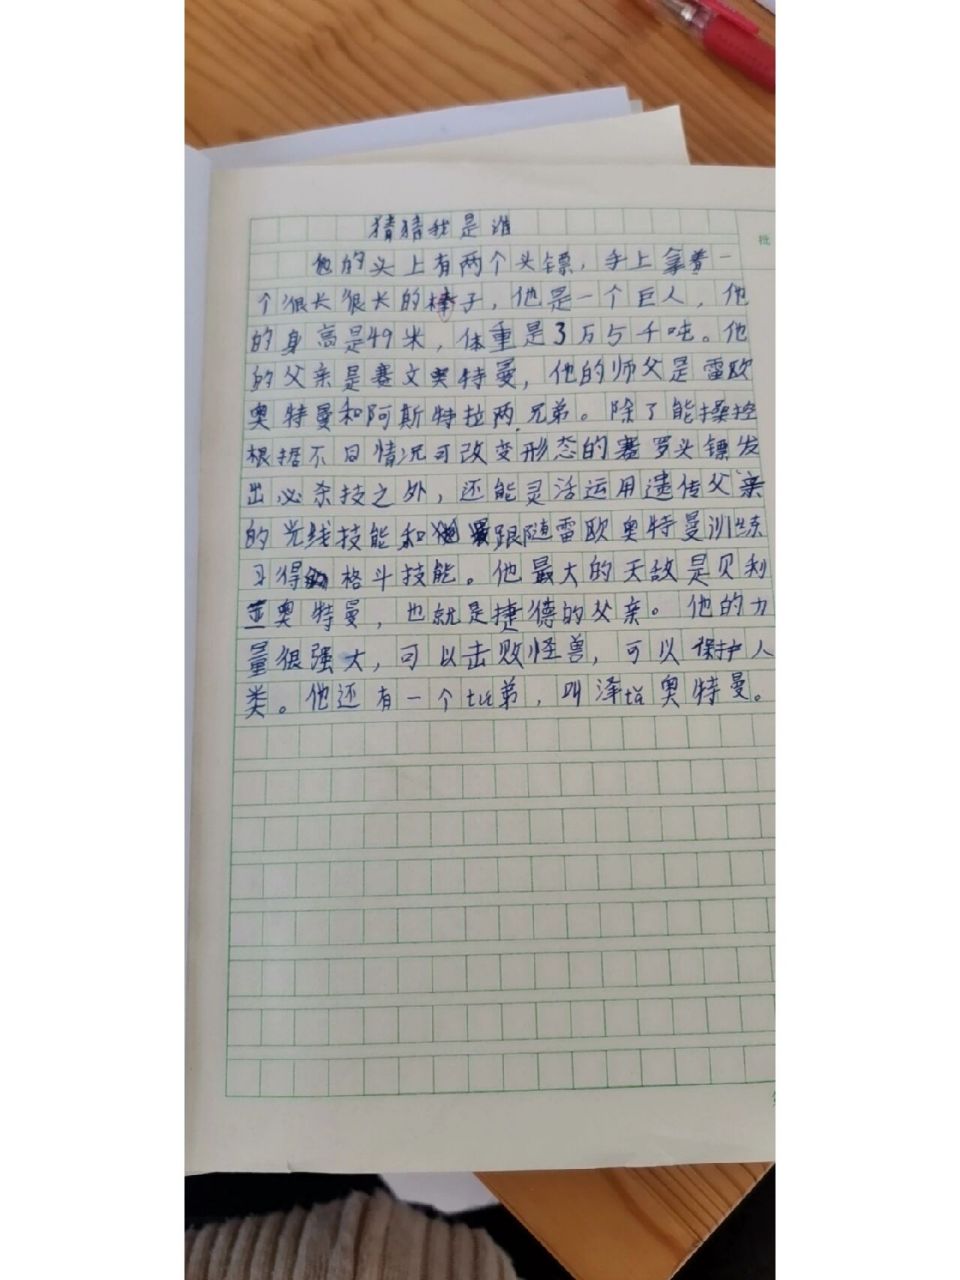 猜猜我是谁
他的头上有两个头镖，手上拿着一
个很长很长的棒子，他是一个巨人，他
的身高是49米，体重是3万5千吨。他
的父亲是赛文奥特曼，他的师父是雷欧
奥特曼和阿斯特拉两兄弟。除了能操控
根据不同情况可改变形态的赛罗头镖发
出必杀技之外，还能灵活运用遗传父亲
的光线技能和跟随雷欧奥特曼训练
习得格斗技能。他最大的天敌是贝利
亚奥特曼，也就是捷德的父亲。他的力
量很强大，可以击败怪兽，可以保护人
类。他还有一个tu弟，叫泽ta奥特曼。
批